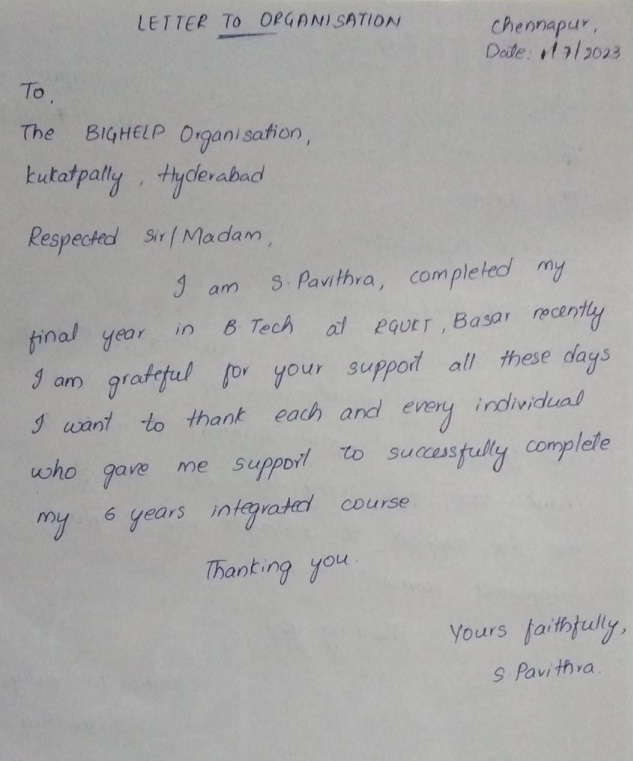 LETTER TO ORGANISATION
Chennapur,
Date: 1/7/2023
To,
The BIGHELP Organisation,
kukatpally, Hyderabad
Respected Sir/Madam,
I am S. Pavithra, completed my
final year in B Tech at RGUKT, Basar recently
I am grateful for your support all these days
I want to thank each and every individual
who gave me support to successfully complete
my 6 years integrated course
Thanking you.
Yours faithfully,
S. Pavithra.